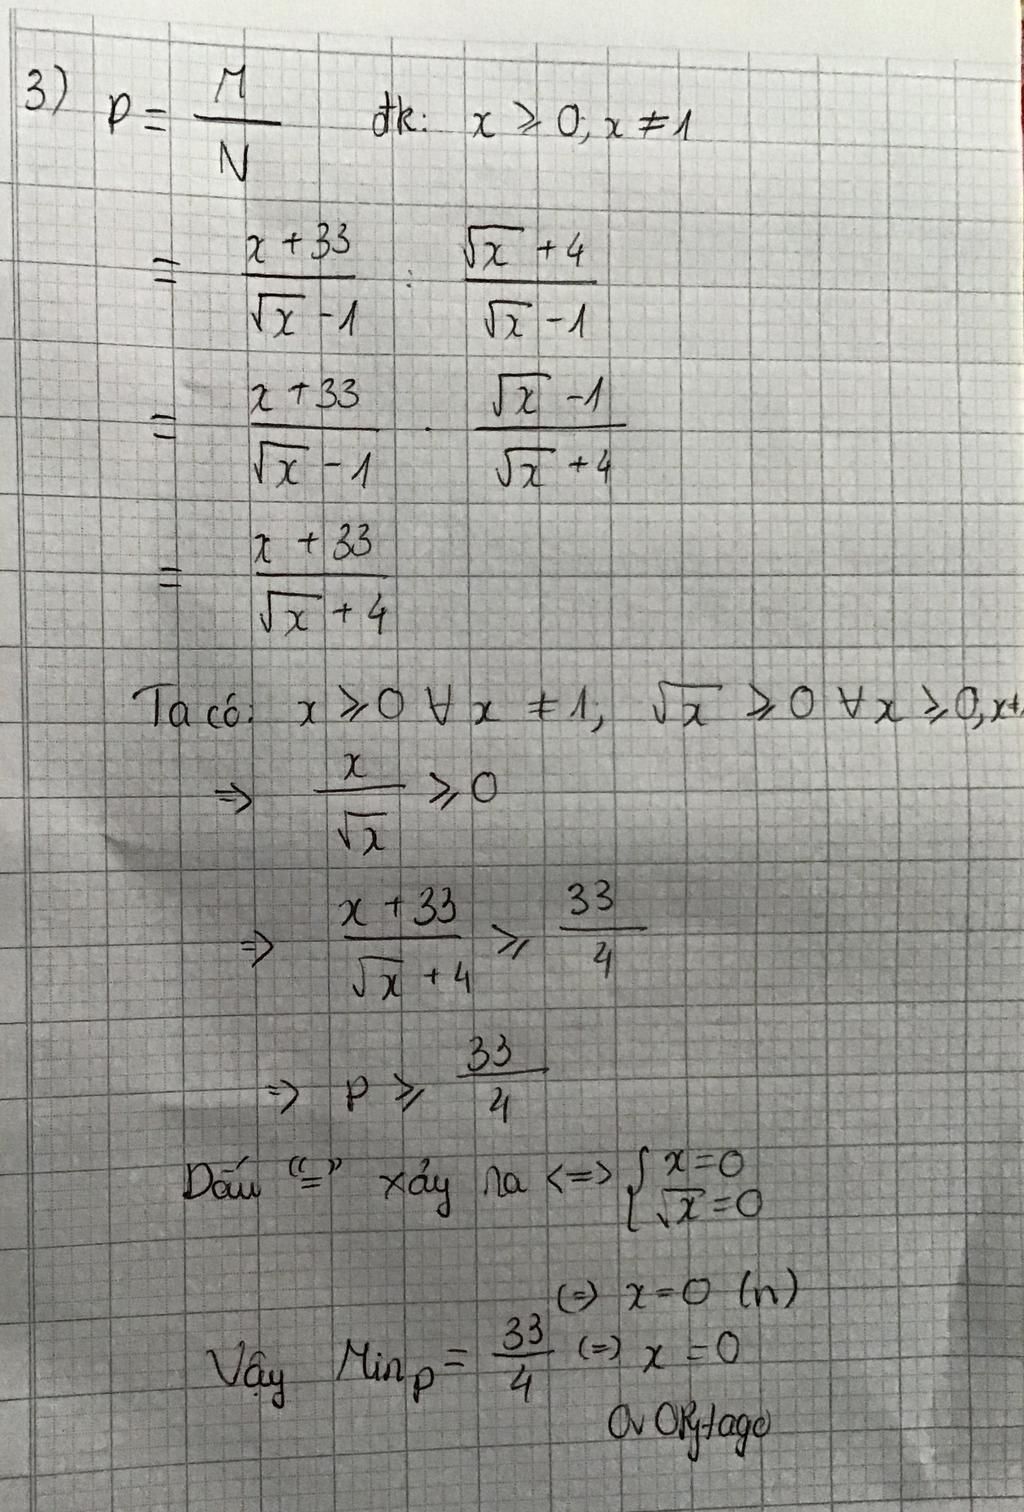 3) P = M/N đk: x ⩾ 0; x ≠ 1
= (x + 33)/(√x - 1) : (√x + 4)/(√x - 1)
= (x + 33)/(√x - 1) . (√x - 1)/(√x + 4)
= (x + 33)/(√x + 4)
Ta có: x ⩾ 0 ∀ x ≠ 1; √x ⩾ 0 ∀ x ⩾ 0, x≠
=> x/√x ⩾ 0
=> (x + 33)/(√x + 4) ⩾ 33/4
=> P ⩾ 33/4
Dấu "=" xảy ra <=> { x = 0
√x = 0
(=) x = 0 (n)
Vậy Min P = 33/4 (=) x = 0